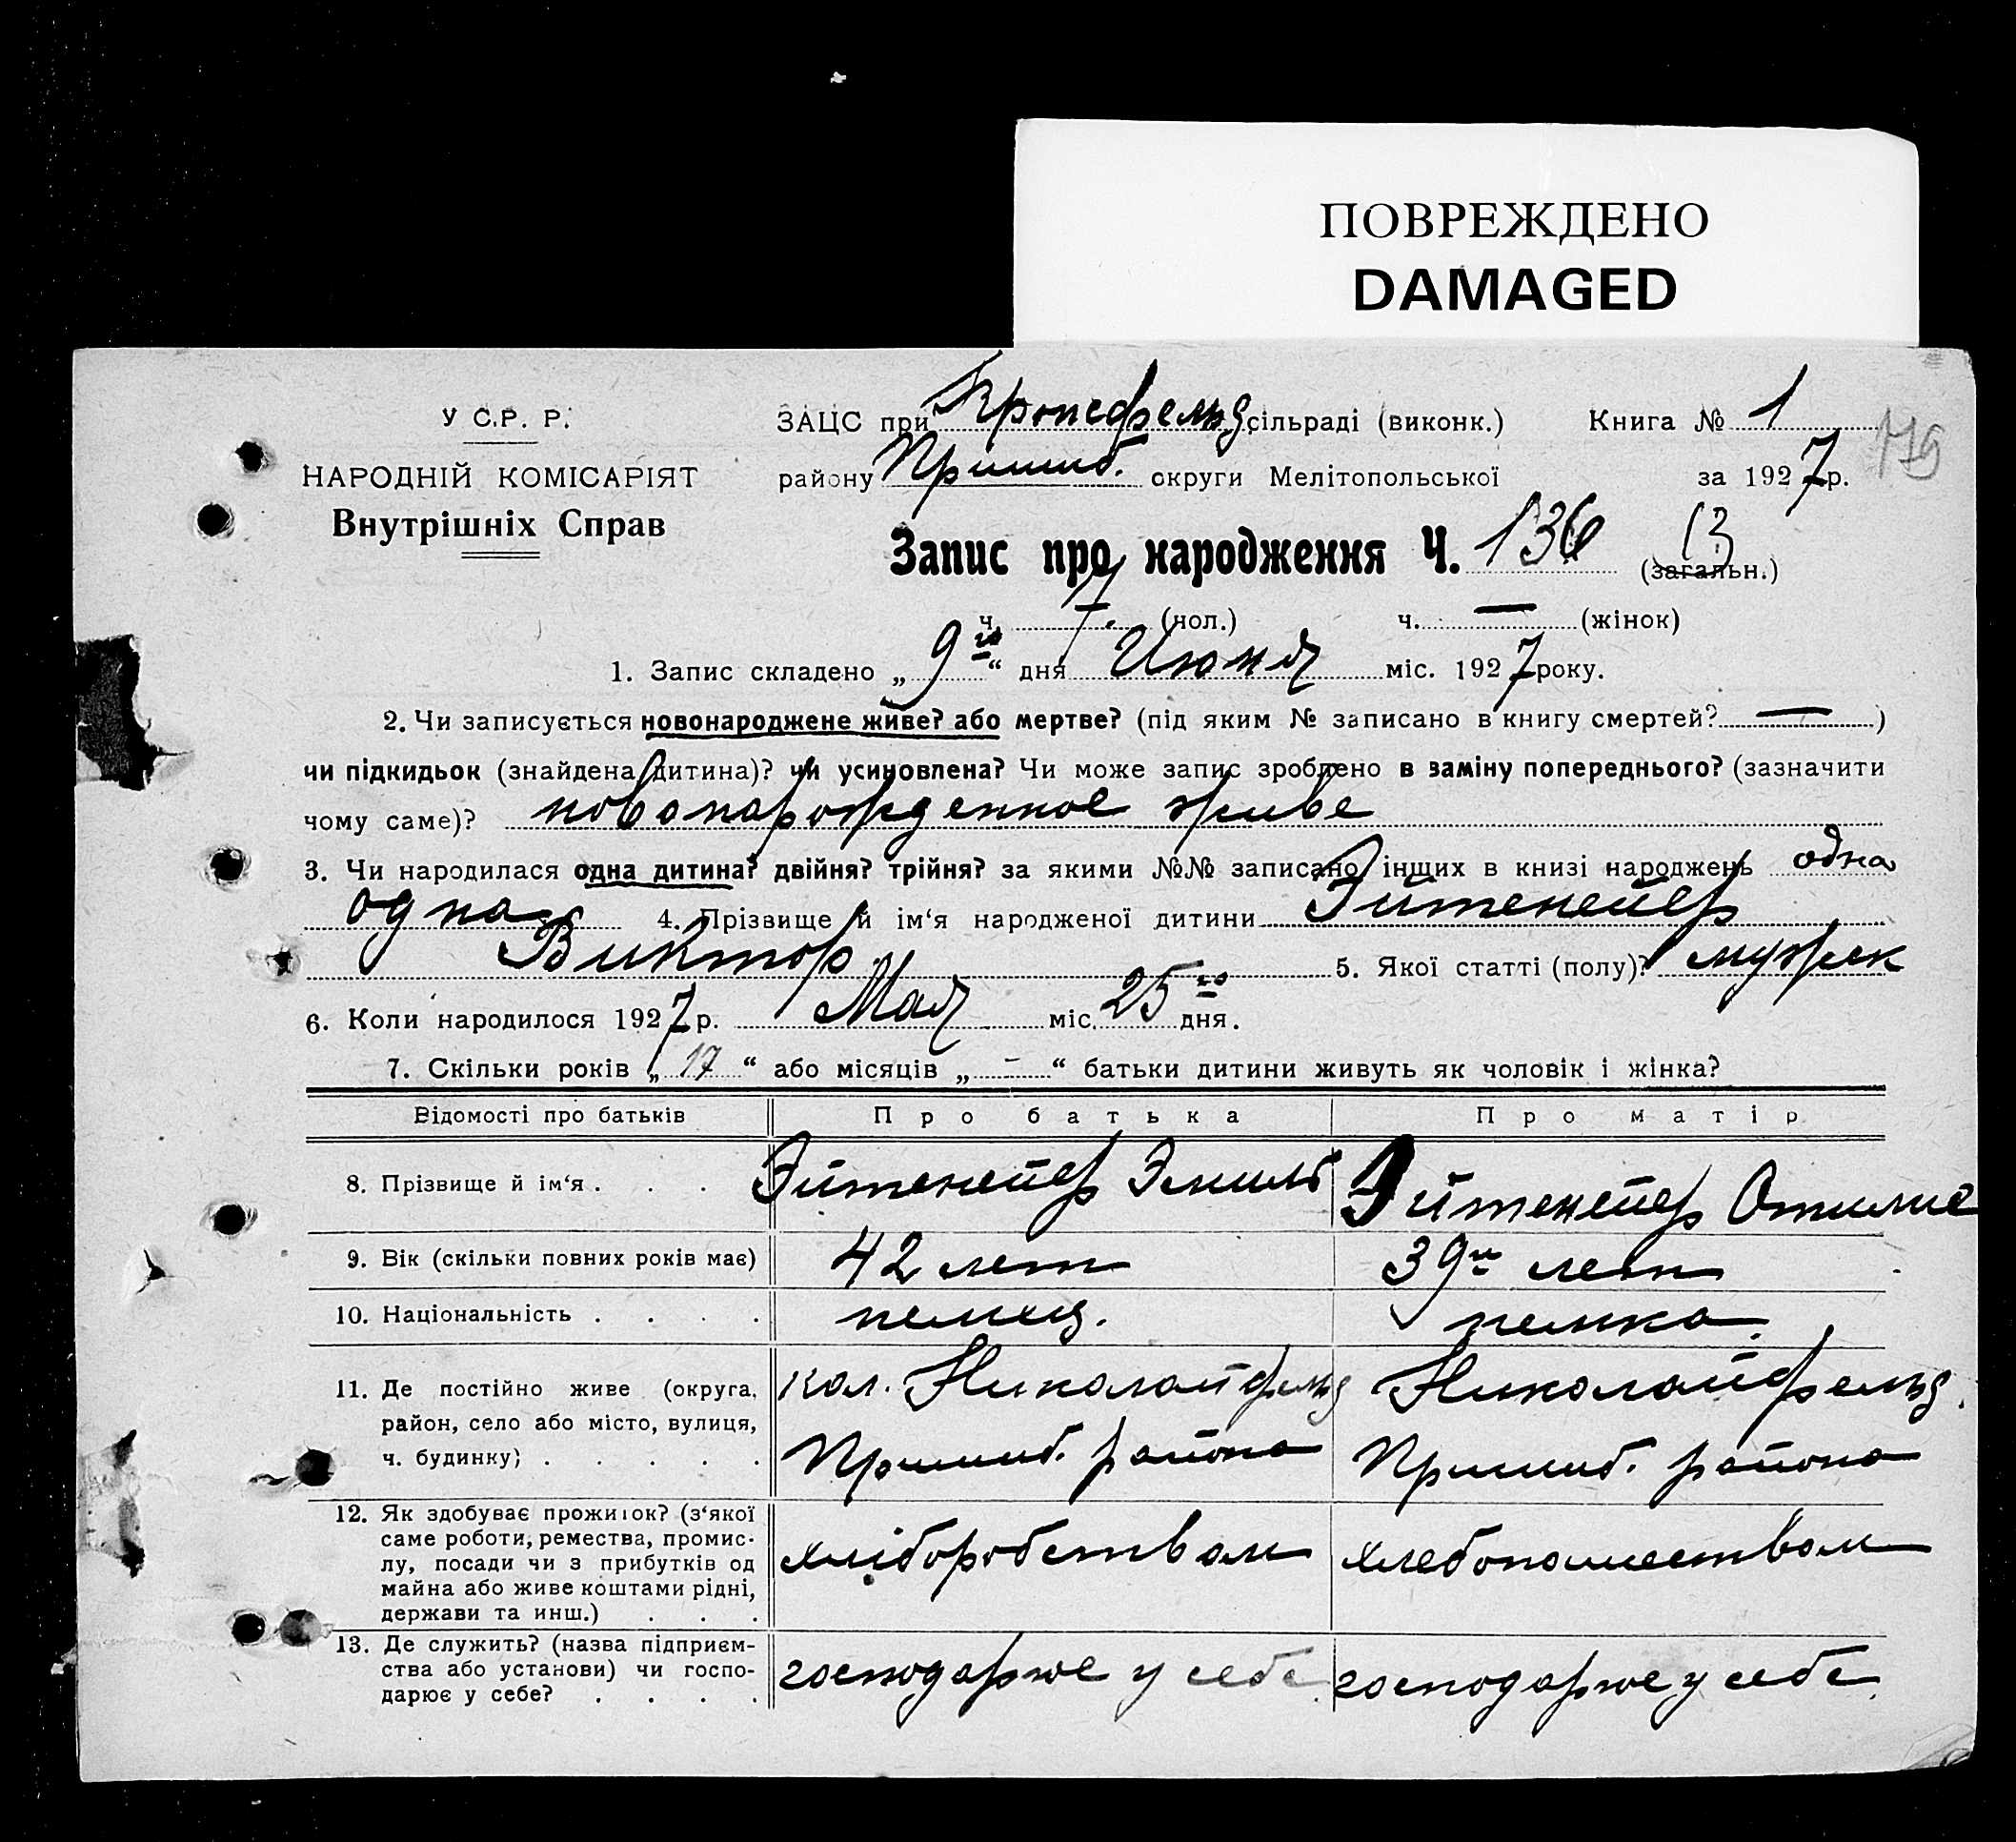 ПОВРЕЖДЕНО
DAMAGED
У С.Р. Р.
ЗАЦС при Кронсфельд сільраді (виконк.) Книга № 1
НАРОДНІЙ КОМІСАРІЯТ
району Пришиб. округи Мелітопольської за 1927 р.
Внутрішніх Справ
Запис про народження Ч. 136 13 (загальн.)
ч. 7. (чол.) ч. — (жінок)
1. Запис складено „ 9го “ дня Июня міс. 1927 року.
2. Чи записується новонароджене живе? або мертве? (під яким № записано в книгу смертей? — )
чи підкидьок (знайдена дитина)? чи усиновлена? Чи може запис зроблено в заміну попереднього? (зазначити
чому саме)? новонарожденное живе
3. Чи народилася одна дитина? двійня? трійня? за якими №№ записано інших в книзі народжень одна
одна 4. Прізвище й ім‘я народженої дитини Эйтенейер
Виктор. 5. Якої статті (полу)? мужск
6. Коли народилося 1927 р. Мая міс. 25го дня.
7. Скільки років „ 17 “ або місяців „ - “ батьки дитини живуть як чоловік і жінка?
Відомості про батьків Про батька Про матір
8. Прізвище й ім‘я . . . Эйтенейер Эмиль Эйтенейер Отилие
9. Вік (скільки повних років має) 42 лет 39и лет
10. Національність . . . . немец. немка.
11. Де постійно живе (округа, кол. Николайфельд Николайфельд.
район, село або місто, вулиця,
ч. будинку) . . . . . Пришиб. района Пришиб. района
12. Як здобуває прожиток? (з‘якої
саме роботи, ремества, промис-
лу, посади чи з прибутків од хліборобством хлебопашеством
майна або живе коштами рідні,
держави та инш.) . . .
13. Де служить? (назва підприєм-
ства або установи) чи госпо- господарюе у себе. господарюе у себе.
дарює у себе? . . . .